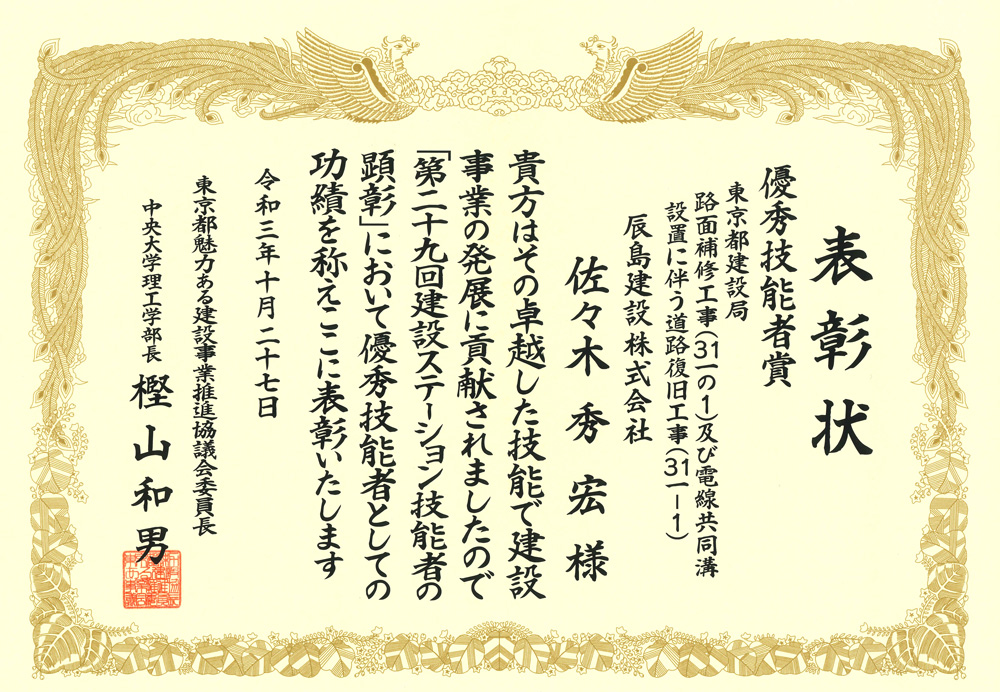 表彰状
優秀技能者賞
東京都建設局
路面補修工事(31一の1)及び電線共同溝
設置に伴う道路復旧工事(31一1)
辰島建設株式会社
佐々木秀宏様
貴方はその卓越した技能で建設
事業の発展に貢献されましたので
「第二十九回建設ステーション技能者の
顕彰」において優秀技能者としての
功績を称えここに表彰いたします
令和三年十月二十七日
東京都魅力ある建設事業推進協議会委員長
中央大学理工学部長 樫山和男